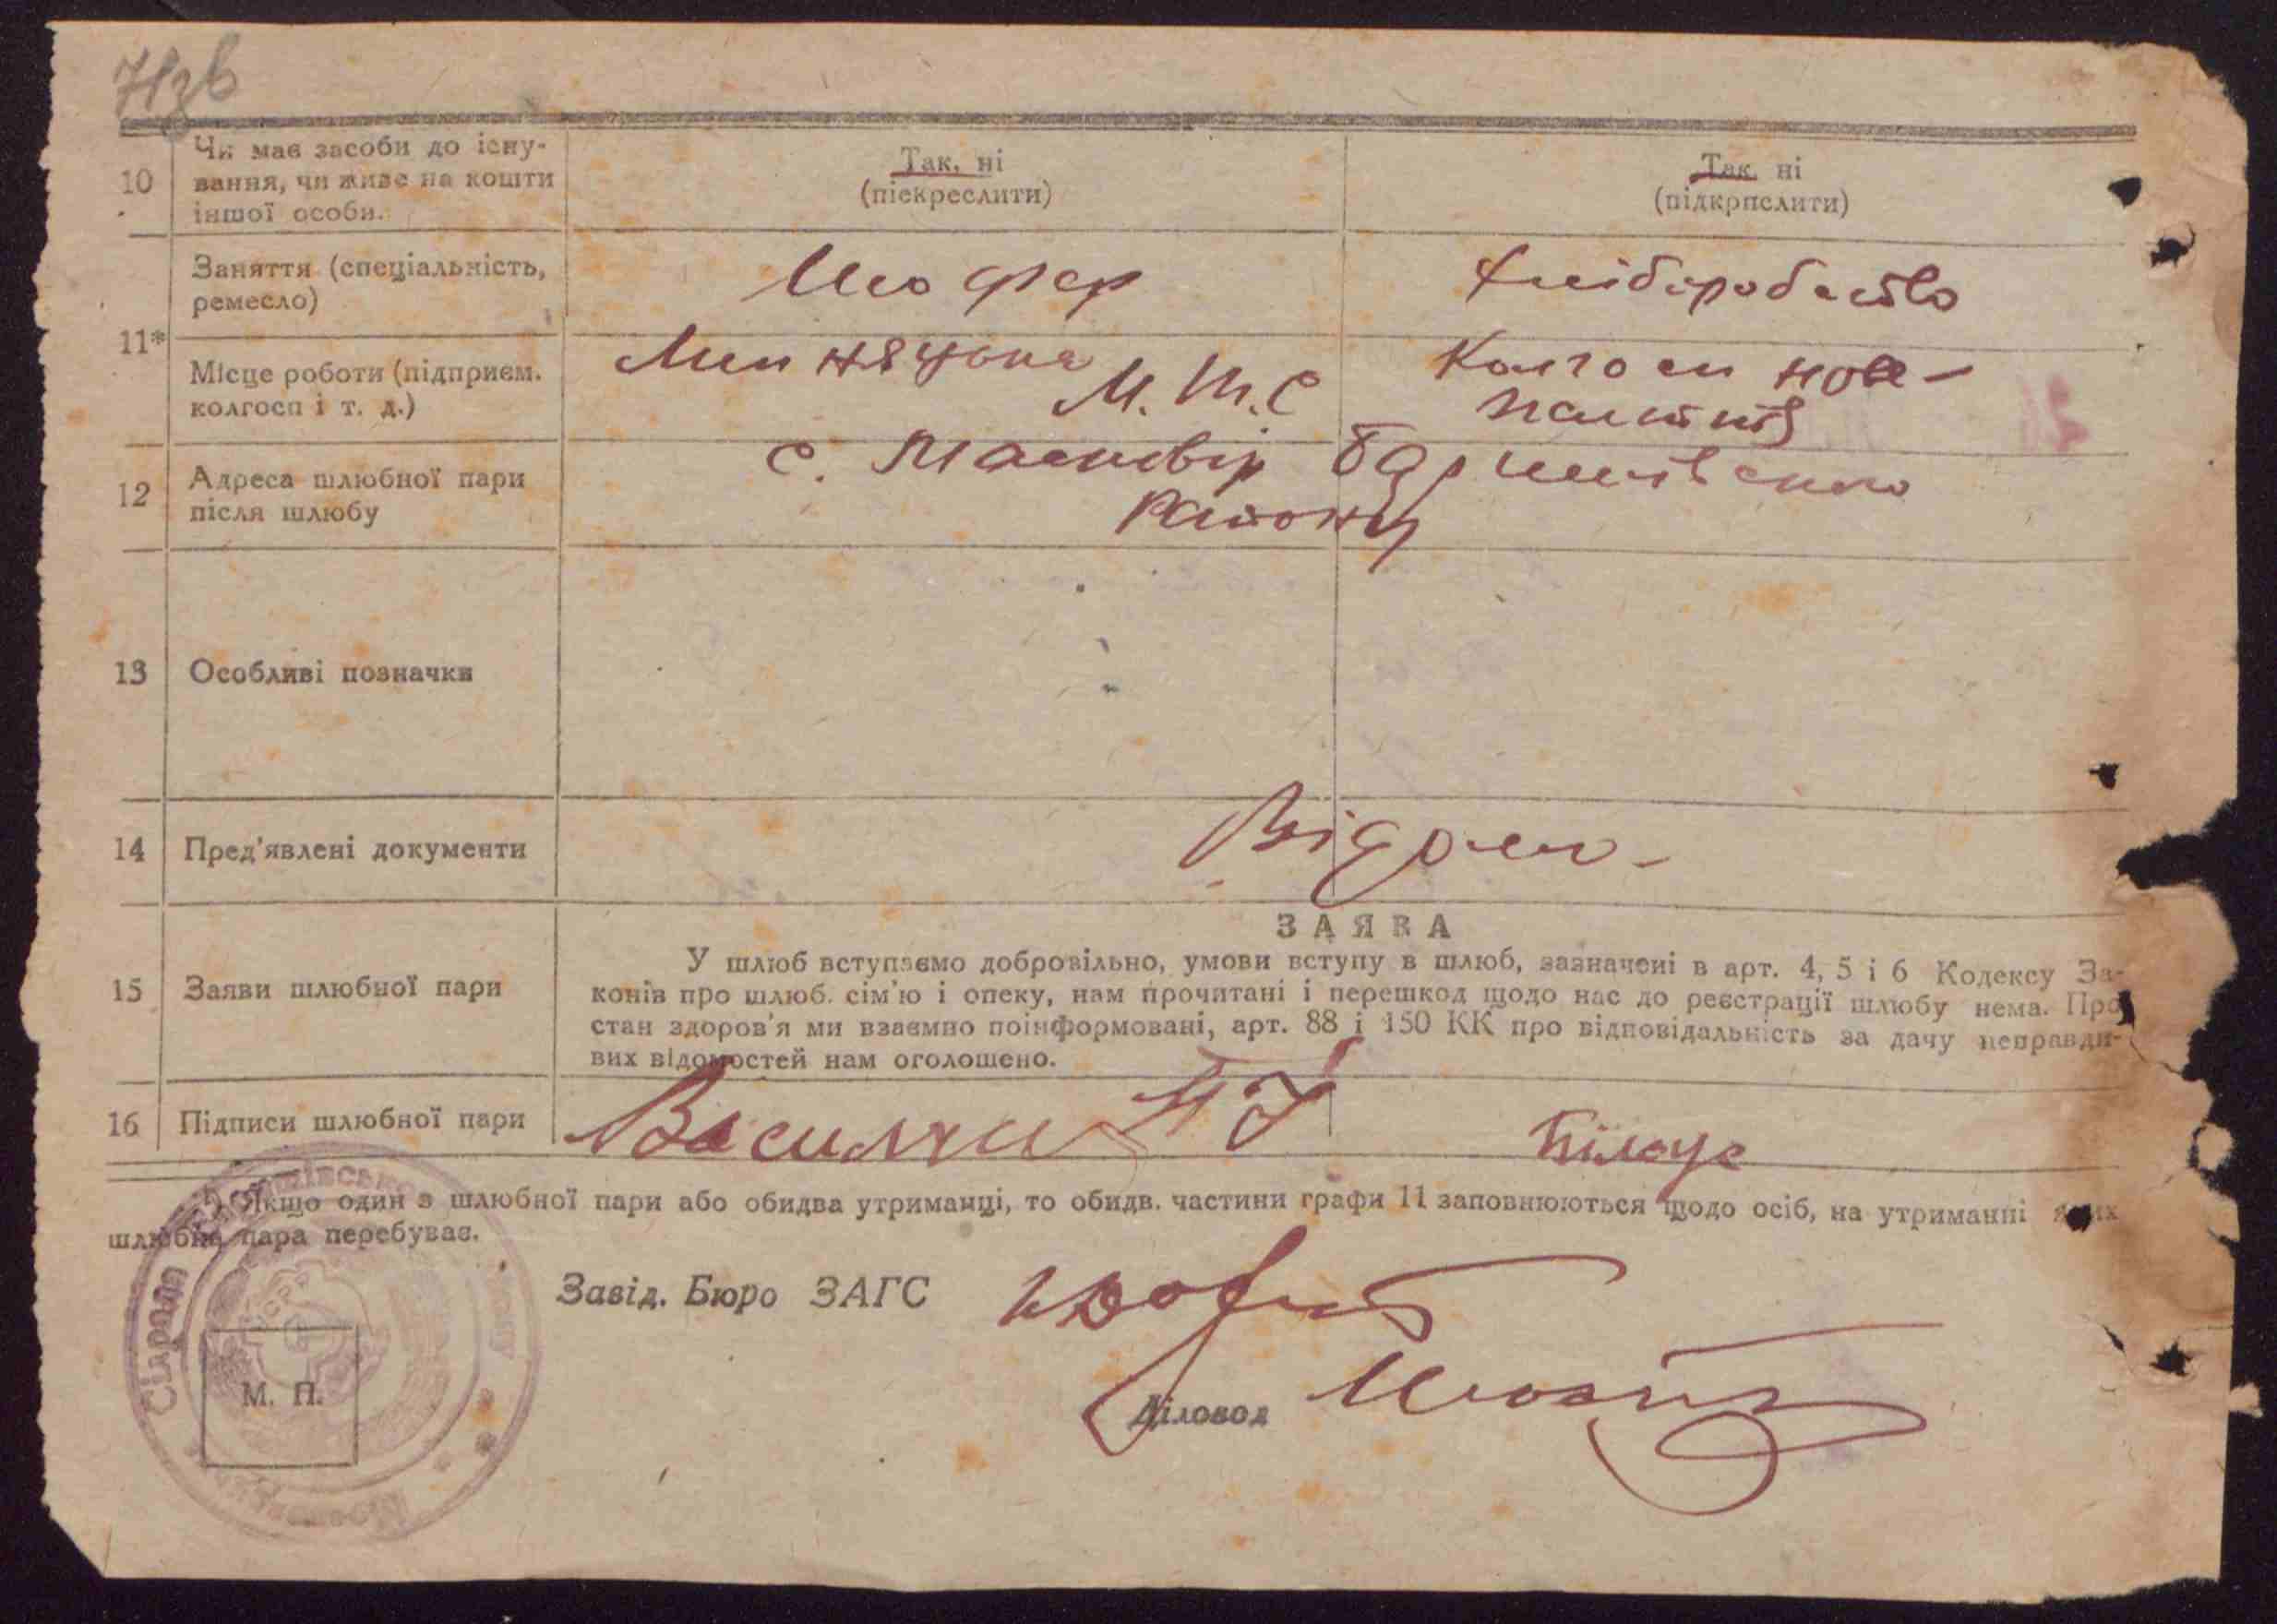 71зв
10
Чи має засоби до існу-
вання, чи живе на кошти
іншої особи.
Так, ні
(піекреслити)
Так, ні
(підкрпслити)
11*
Заняття (спеціальність,
ремесло)
Шофер
Хліборобство
Місце роботи (підприєм.
колгосп і т. д.)
М. Т. С
Колгосп нове-
життя
12
Адреса шлюбної пари
після шлюбу
с. Масковці Баришівського
Району
13
Особливі позначки
14
Пред'явлені документи
15
Заяви шлюбної пари
ЗАЯВА
У шлюб вступаємо добровільно, умови вступу в шлюб, зазначені в арт. 4, 5 і 6 Кодексу За-
конів про шлюб. сім'ю і опеку, нам прочитані і перешкод щодо нас до реєстрації шлюбу нема. Про
стан здоров'я ми взаємно поінформовані, арт. 88 і 150 КК про відповідальність за дачу неправди-
вих відомостей нам оголошено.
16
Підписи шлюбної пари
Білоус
*) Якщо один з шлюбної пари або обидва утриманці, то обидв. частини графи 11 заповнюються щодо осіб, на утриманні яких
шлюбна пара перебуває.
Завід. Бюро ЗАГС
Діловод
М. П.